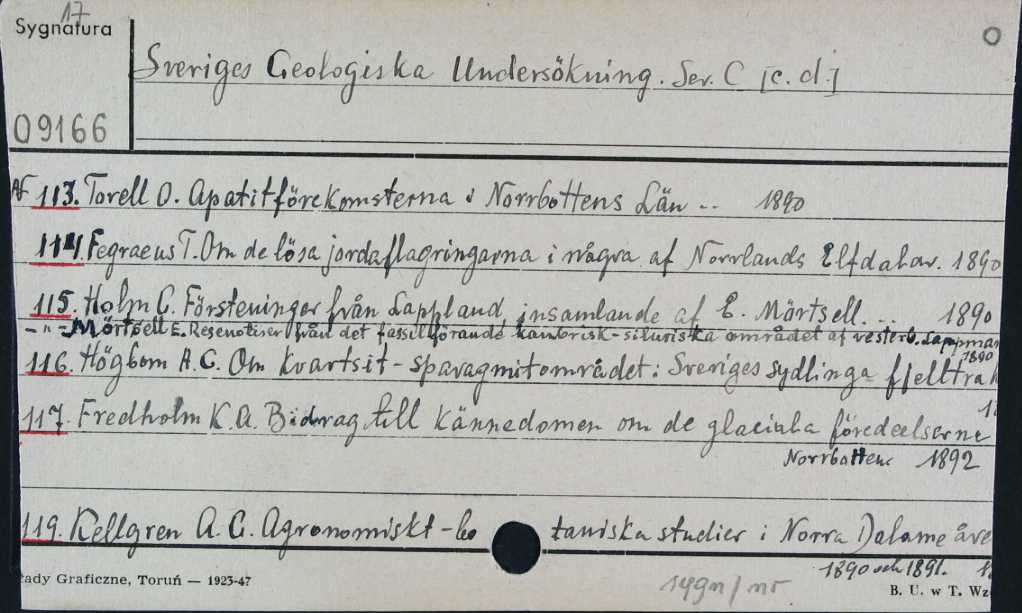 17
Sygnatura
Sveriges Geologiska Undersökning. Ser. C [c. d.]
09166
113. Torell O. Apatitförekomsterna i Norrbottens Län .. 1890
114. Fegraeus T. Om de lösa jordaflagringarna i några af Norrlands Elfdalar. 1890
115. Holm G. Försteninger från Lappland, insamlande af E. Mörtsell. .. 1890
- " - Mörtsell E. Resenotiser från det fossilförande kambrisk-siluriska området af vesterb. Lappmar
1890
116. Högbom A. G. Om kvartsit-sparagmitområdet i Sveriges sydlinga fjelltrak
117. Fredholm K. A. Bidrag till kännedomen om de glaciala föredeelserne
Norrbotten 1892
119. Kellgren A. G. Agronomiskt-bo taniska studier i Norra Dalarne åre
1890 och 1891.
ady Graficzne, Toruń — 1923-47
sygn/nr
B. U. w T. Wz